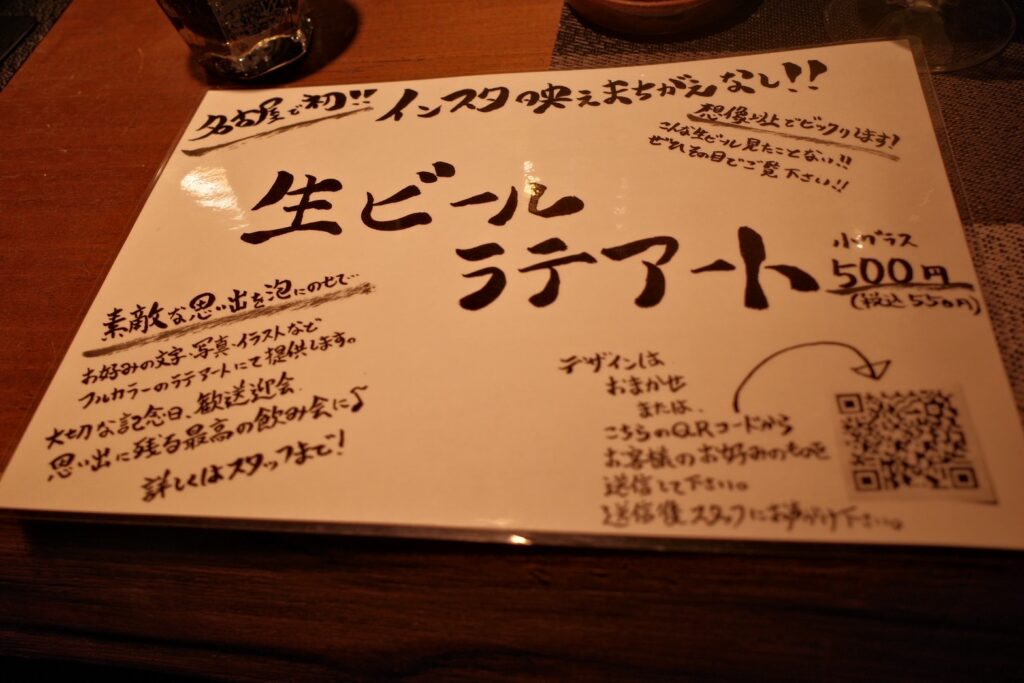 名古屋で初!! インスタ映えまちがえなし!!
想像以上でビックリします!
こんな生ビール見たことない!!
ぜひその目でご覧下さい!!
生ビール
ラテアート
小グラス
500円
(税込550円)
素敵な思い出を泡にのせて…
お好みの文字・写真・イラストなど
フルカラーのラテアートにて提供します。
大切な記念日、歓送迎会
思い出に残る最高の飲み会に♪
詳しくはスタッフまで!
デザインは
おまかせ
または、
こちらのQRコードから
お客様のお好みのものを
送信して下さい。
送信後スタッフにお声がけ下さい。